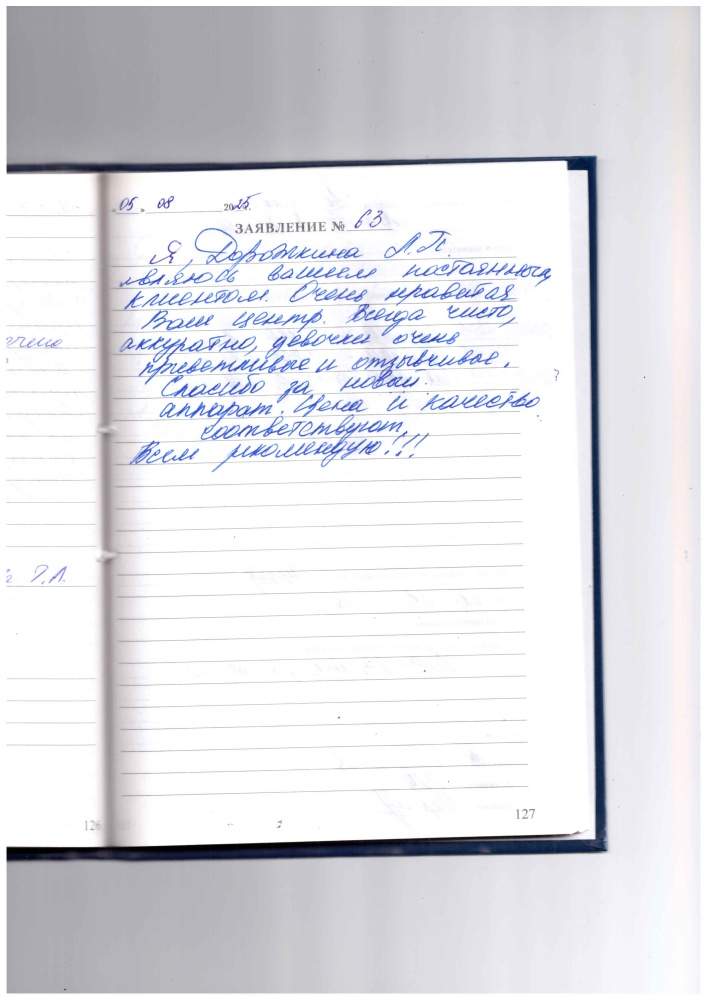 „05" 08 2025г.
ЗАЯВЛЕНИЕ № 63
Я, Дорожкина Л.П.
являюсь вашем постоянным
клиентом. Очень нравится
Ваш центр. Всегда чисто,
аккуратно, девочки очень
приветливые и отзывчивые.
Спасибо за новый
аппарат. Цена и качество
соответствуют.
Всем рекомендую!!!
Л.
126
127